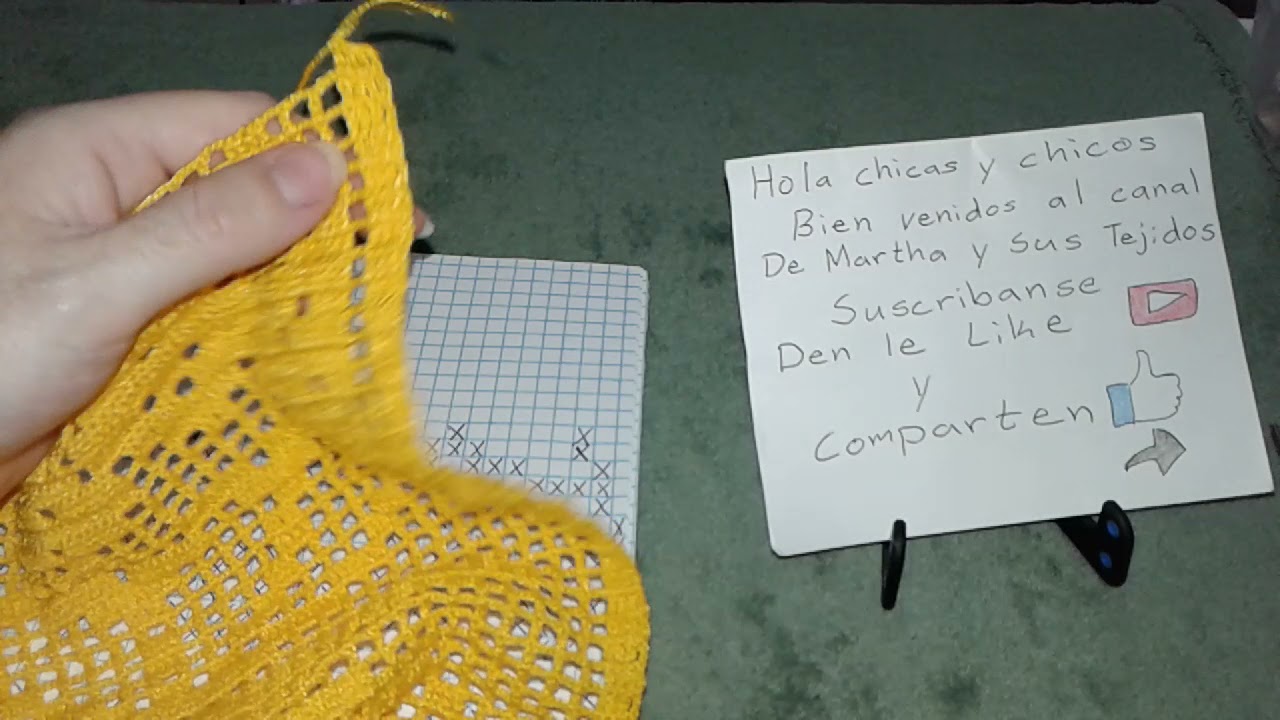 Hola chicas y chicos
Bien venidos al canal
De Martha y Sus Tejidos
Suscribanse
Den le Like
y
Comparten